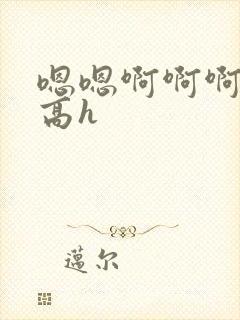 嗯嗯啊啊啊
高h
薖尔